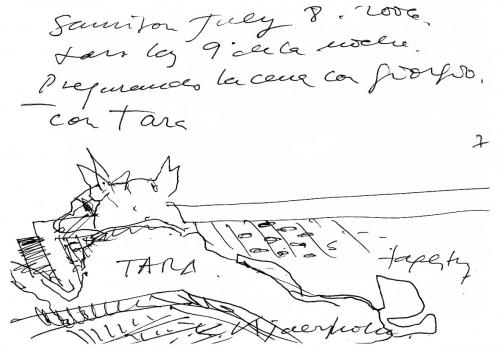 July 8. 2006.
las 9 de la noche.
Preparando la cena con Giorgio.
con Tara
7
TARA
tapestry